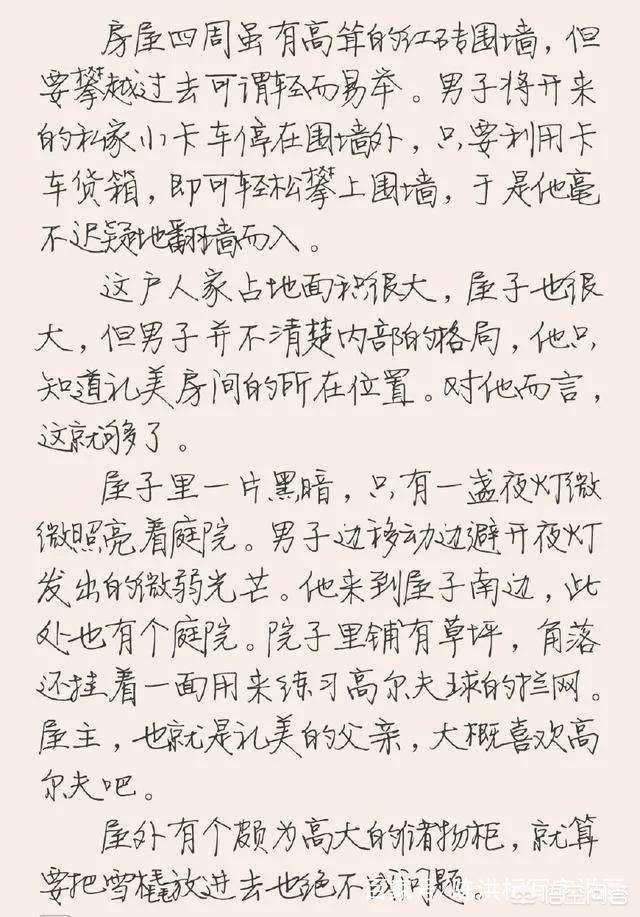 房屋四周虽有高耸的红砖围墙，但
要攀越过去可谓轻而易举。男子将开来
的私家小卡车停在围墙外，只要利用卡
车货箱，即可轻松攀上围墙，于是他毫
不迟疑地翻墙而入。
这户人家占地面积很大，屋子也很
大，但男子并不清楚内部的格局，他只
知道礼美房间的所在位置。对他而言，
这就够了。
屋子里一片黑暗，只有一盏夜灯微
微照亮着庭院。男子边移动边避开夜灯
发出的微弱光芒。他来到屋子南边，此
处也有个庭院。院子里铺有草坪，角落
还挂着一面用来练习高尔夫球的拦网。
屋主，也就是礼美的父亲，大概喜欢高
尔夫吧。
屋外有个颇为高大的储物柜，就算
要把雪橇放进去也绝不成问题。
悟空问答